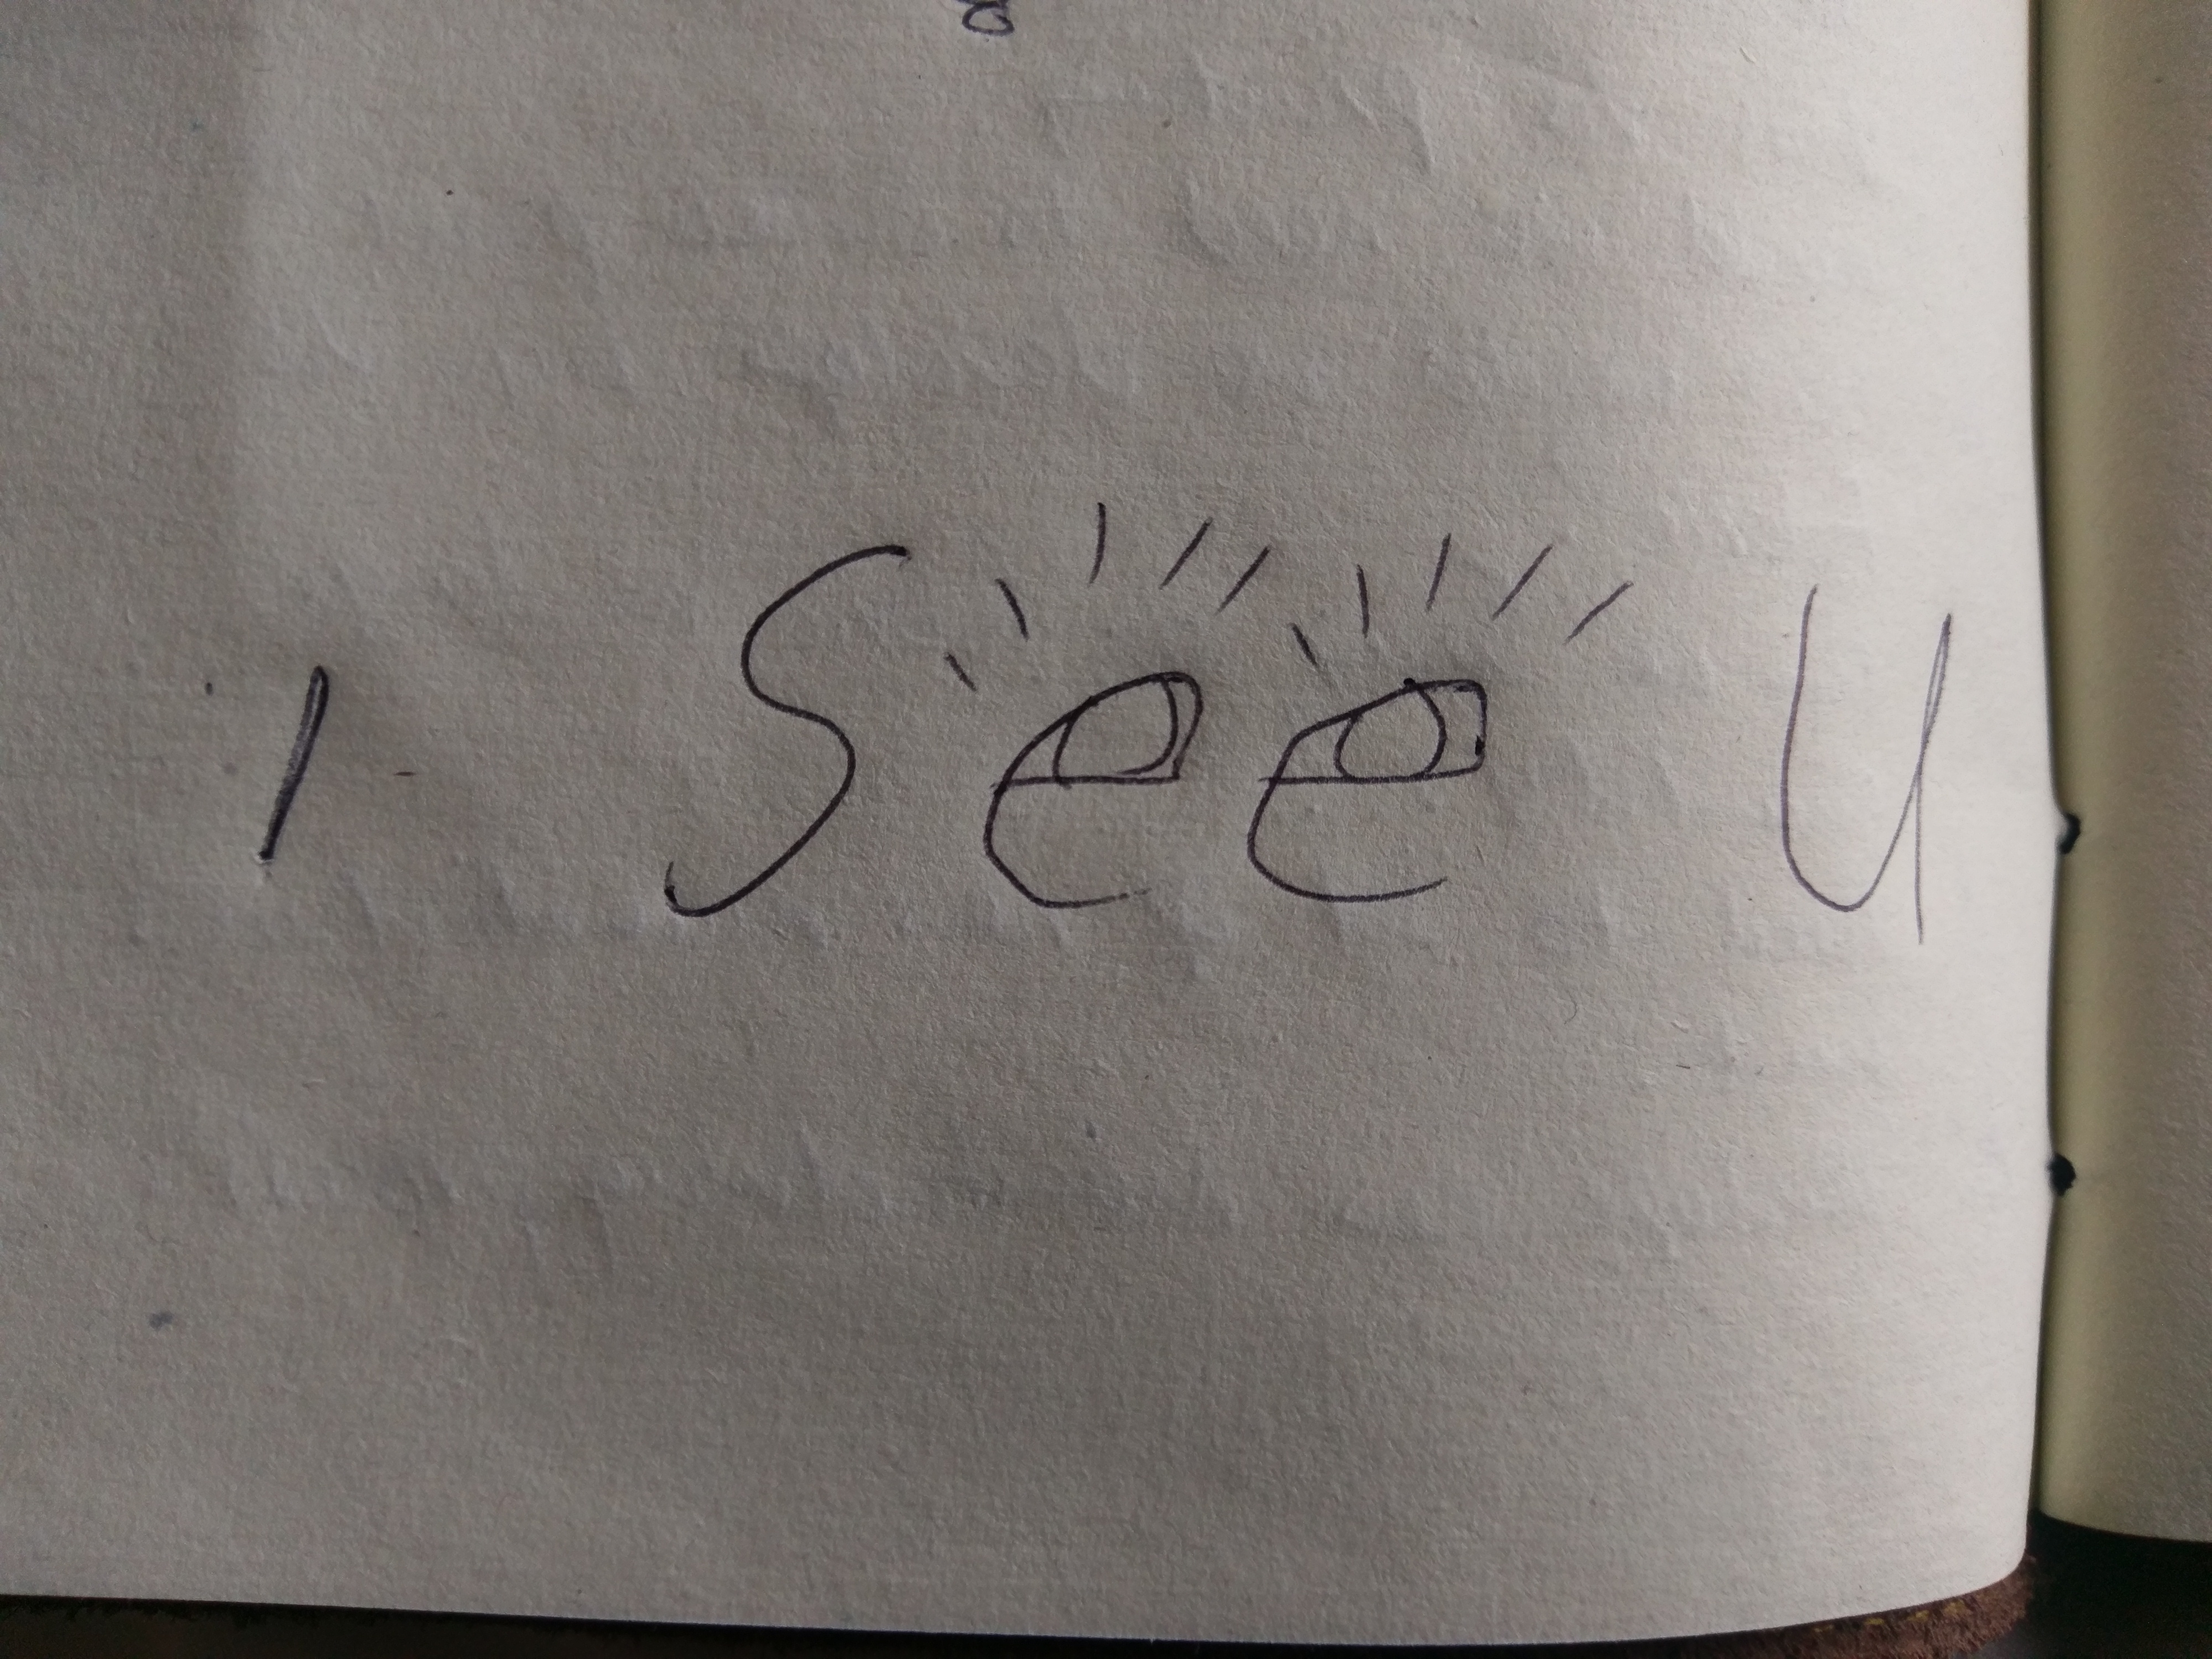 I See U